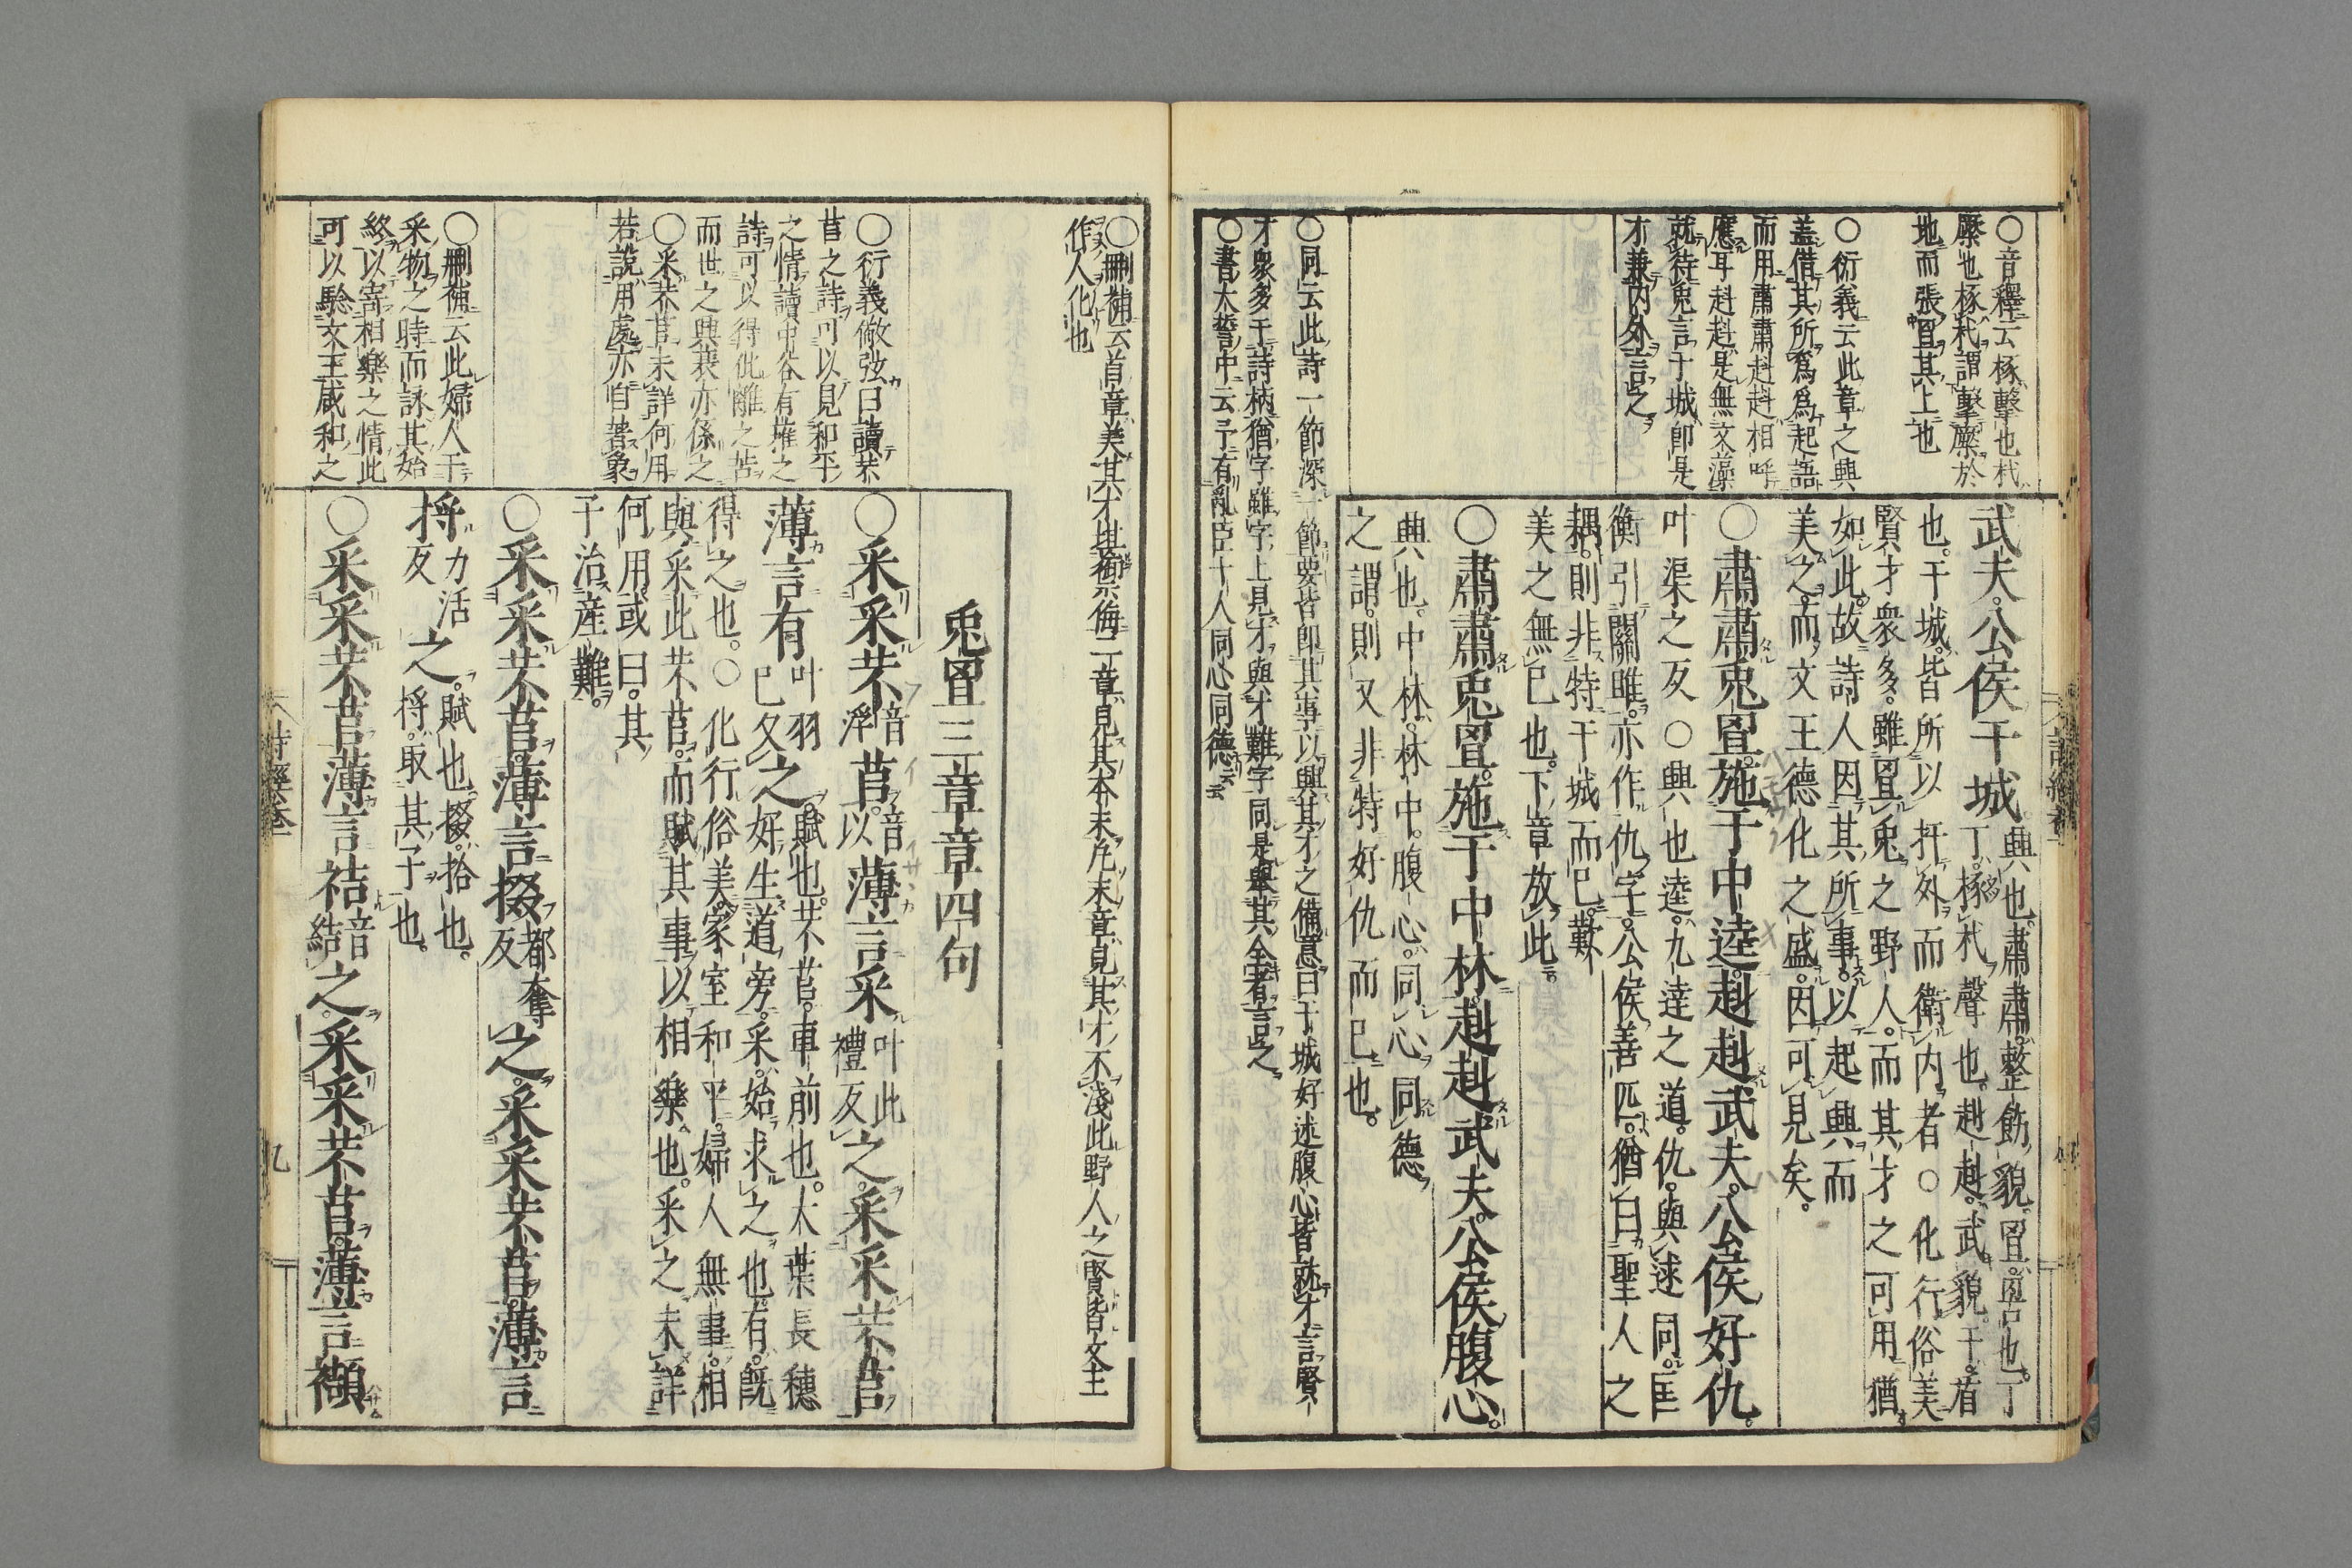 〇音釋云椓擊也杙
橜也椓杙謂擊橜於
地而張罝其上也
〇衍義云此章之興
盖借其所爲爲起語
而用肅肅赳赳相呼
應耳赳赳是無文藻
就待兎言干城卽是
才兼内外言之
武夫公侯干城
興也肅肅整飭貌罝罟也丁
丁椓杙聲也赳赳武貌干盾
也干城皆所以扞外而衛内者〇化行俗美
賢才衆多雖罝兎之野人而其才之可用猶
如此故詩人因其所事以起興而
美之而文王德化之盛因可見矣
〇肅肅兎罝施于中逵赳赳武夫公侯好仇
叶渠之反〇興也逵九逵之道仇與逑同匡
衡引關雎亦作仇字公侯善匹猶曰聖人之
耦則非特干城而已歎
美之無已也下章放此
〇肅肅兎罝施于中林赳赳武夫公侯腹心
興也中林林中腹心同心同德
之謂則又非特好仇而已也
〇同云此詩一節深一節要皆卽其事以興其才之備意曰干城好逑腹心皆就才言賢
才衆多于詩柄猶字雖字上見才與才難字同是舉其全者言之
〇書太誓中云予有亂臣十人同心同德云
〇刪補云首章美其才堪禦侮二章見其本末九末章見其才不淺此野人之賢皆文王
作人化也
〇衍義儆弦曰讀芣
苢之詩可以見和平
之情讀中谷有蓷之
詩可以得仳離之苦
而世之興衰亦係之
〇采芣苢未詳何用
若說用處亦自著象
〇刪補云此婦人于
采物之時而詠其始
終以寄相樂之情此
可以驗文王咸和之
兎罝三章章四句
〇采采芣音浮苢音以薄言采叶此禮反之采采芣苢
薄言有叶羽已反之賦也芣苢車前也大葉長穗
好生道旁采始求之也有旣
得之也〇化行俗美家室和平婦人無事相
與采此芣苢而賦其事以相樂也采之未詳
何用或曰其
子治產難
〇采采芣苢薄言掇都奪反之采采芣苢薄言
捋力活反之賦也掇拾也
捋取其子也
〇采采芣苢薄言袺音結之采采芣苢薄言襭
詩經卷一
九